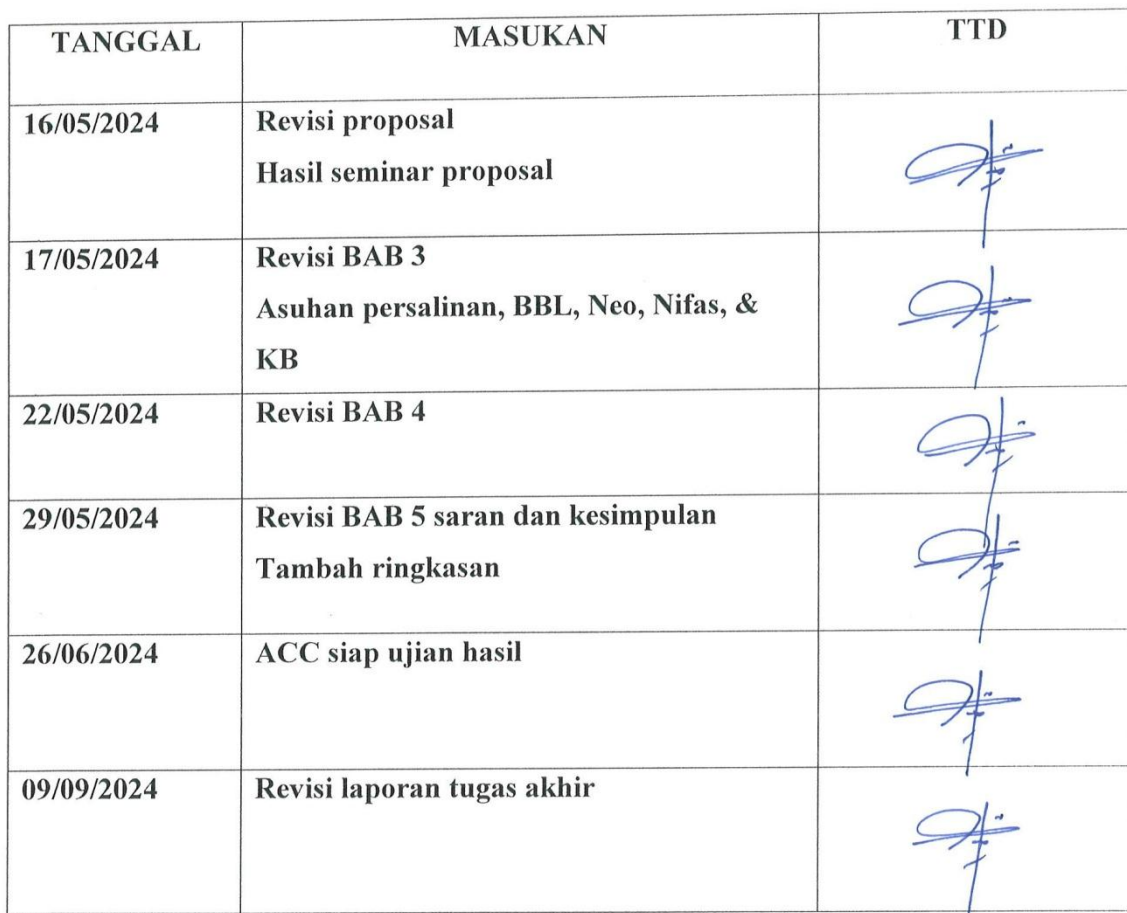 TANGGAL MASUKAN TTD
16/05/2024 Revisi proposal
Hasil seminar proposal
17/05/2024 Revisi BAB 3
Asuhan persalinan, BBL, Neo, Nifas, &
KB
22/05/2024 Revisi BAB 4
29/05/2024 Revisi BAB 5 saran dan kesimpulan
Tambah ringkasan
26/06/2024 ACC siap ujian hasil
09/09/2024 Revisi laporan tugas akhir